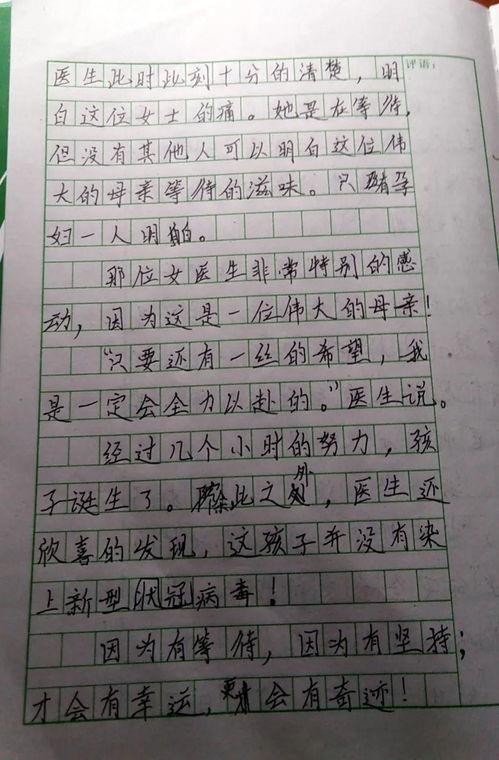 评语：
医生此时此刻十分的清楚，明
白这位女士的痛。她是在等待，
但没有其他人可以明白这位伟
大的母亲等待的滋味。只有孕
妇一人明白。
那位女医生非常特别的感
动，因为这是一位伟大的母亲！
“只要还有一丝的希望，我
是一定会全力以赴的。”医生说。
经过几个小时的努力，孩
子诞生了。除此之外，医生还
欣喜的发现，这孩子并没有染
上新型状冠病毒！
因为有等待，因为有坚持；
才会有幸运，才会有奇迹！